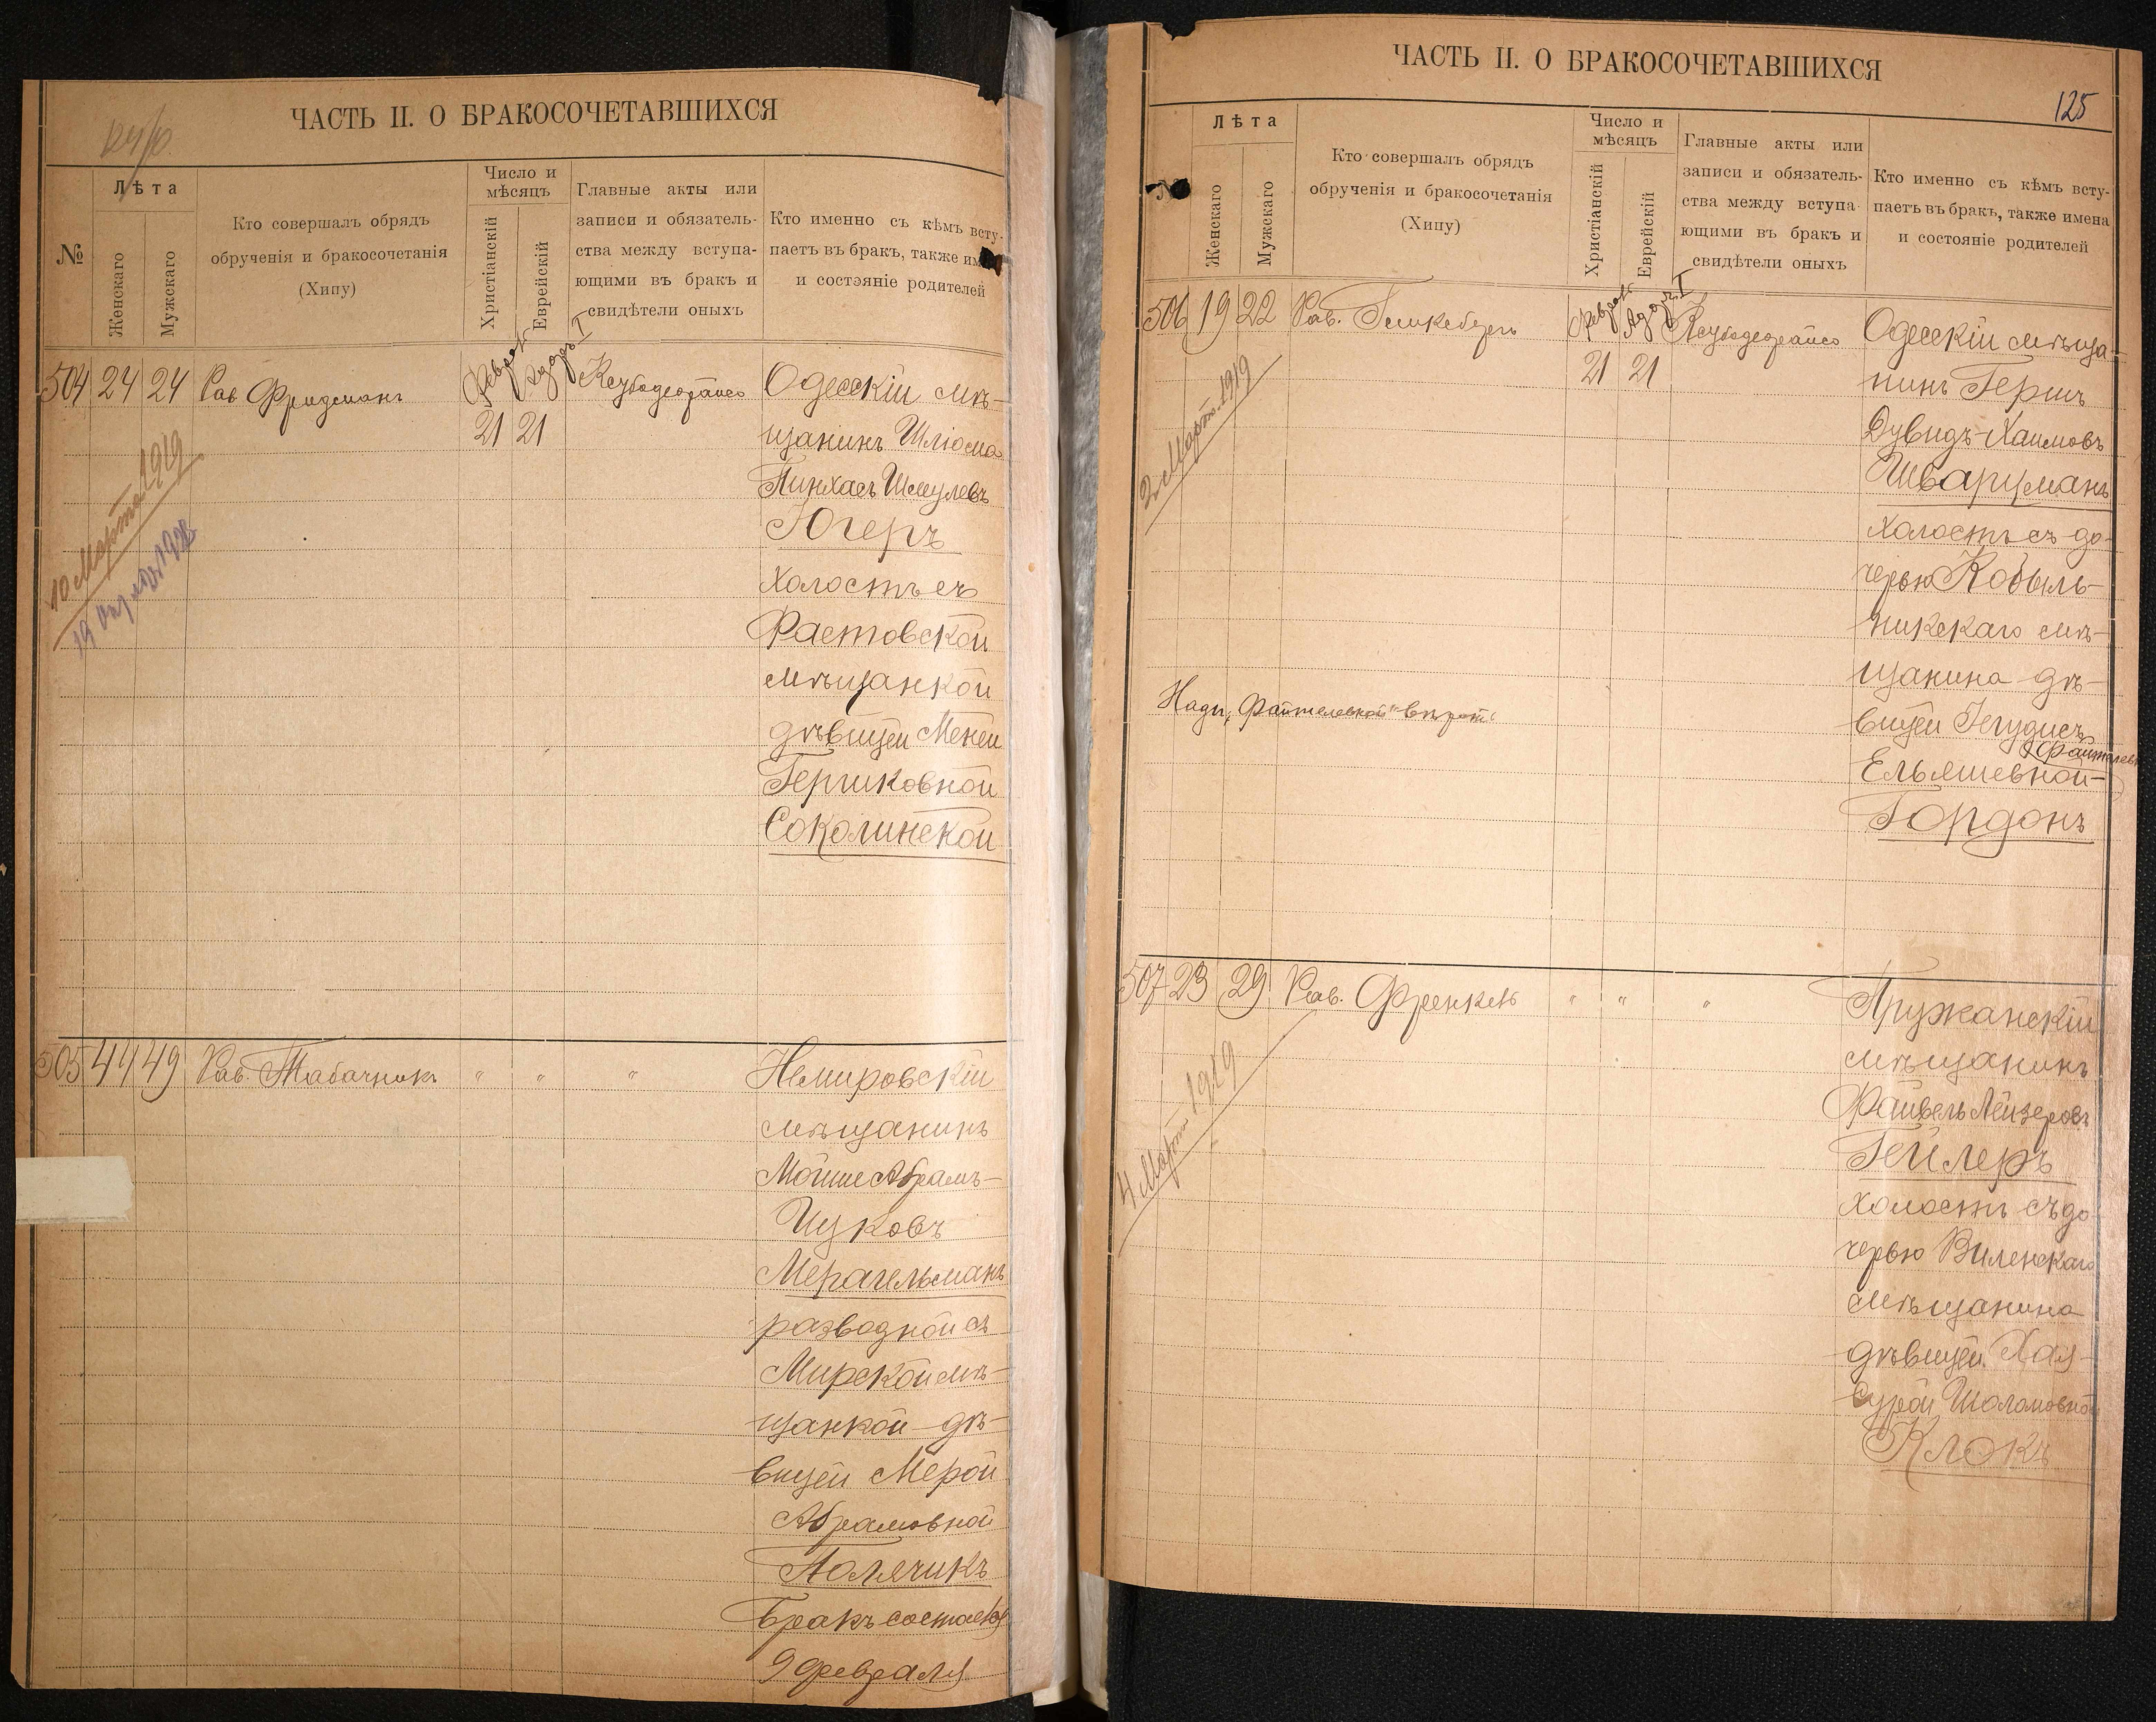 ЧАСТЬ II. О БРАКОСОЧЕТАВШИХСЯ
№
Лѣта
Женскаго
Мужскаго
Кто совершалъ обрядъ
обрученія и бракосочетанія
(Хипу)
Число и
мѣсяцъ
Христіанскій
Еврейскій
Главные акты или
записи и обязатель-
ства между вступа-
ющими въ бракъ и
свидѣтели оныхъ
Кто именно съ кѣмъ всту-
паетъ въ бракъ, также
и состояніе родителей
504 24 24 Рав Фридманъ
21 21
10 Марта 1919
Одесскій мѣ-
щанинъ Шліома
Пинхасъ Шмулевъ
Югеръ
холостъ съ
Растовской
мѣщанкой
дѣвицей Менеи
Гершковной
Соколинской
505 44 49 Рав. Табачникъ " " "
Немировскій
мѣщанинъ
Мойше Абрамъ-
Ицковъ
Мерагельманъ
разводной съ
Мирской мѣ-
щанкой дѣ-
вицей Мерой
Абрамовной
Полячикъ
Бракъ состоялся
9 февраля
ЧАСТЬ II. О БРАКОСОЧЕТАВШИХСЯ
125
№
Лѣта
Женскаго
Мужскаго
Кто совершалъ обрядъ
обрученія и бракосочетанія
(Хипу)
Число и
мѣсяцъ
Христіанскій
Еврейскій
Главные акты или
записи и обязатель-
ства между вступа-
ющими въ бракъ и
свидѣтели оныхъ
Кто именно съ кѣмъ всту-
паетъ въ бракъ, также имена
и состояніе родителей
506 19 22 Рав.
21 21
2 Марта 1919
Одесскій мѣща-
нинъ Герш
Дувидъ-Хаимовъ
Шварцманъ
холостъ съ до-
черью Кобыль-
никскаго мѣ-
щанина дѣ-
вицей Іегудисъ
Ельяшевной-
Гордонъ
507 23 29 Рав. Френкель " " "
4 Марта 1919
Пружанскій
мѣщанинъ
Файвель Лейзеровъ
Гейлеръ
холостъ съ до
черью Виленскаго
мѣщанина
дѣвицей Хая-
Сурой Шоломовной
Клокъ